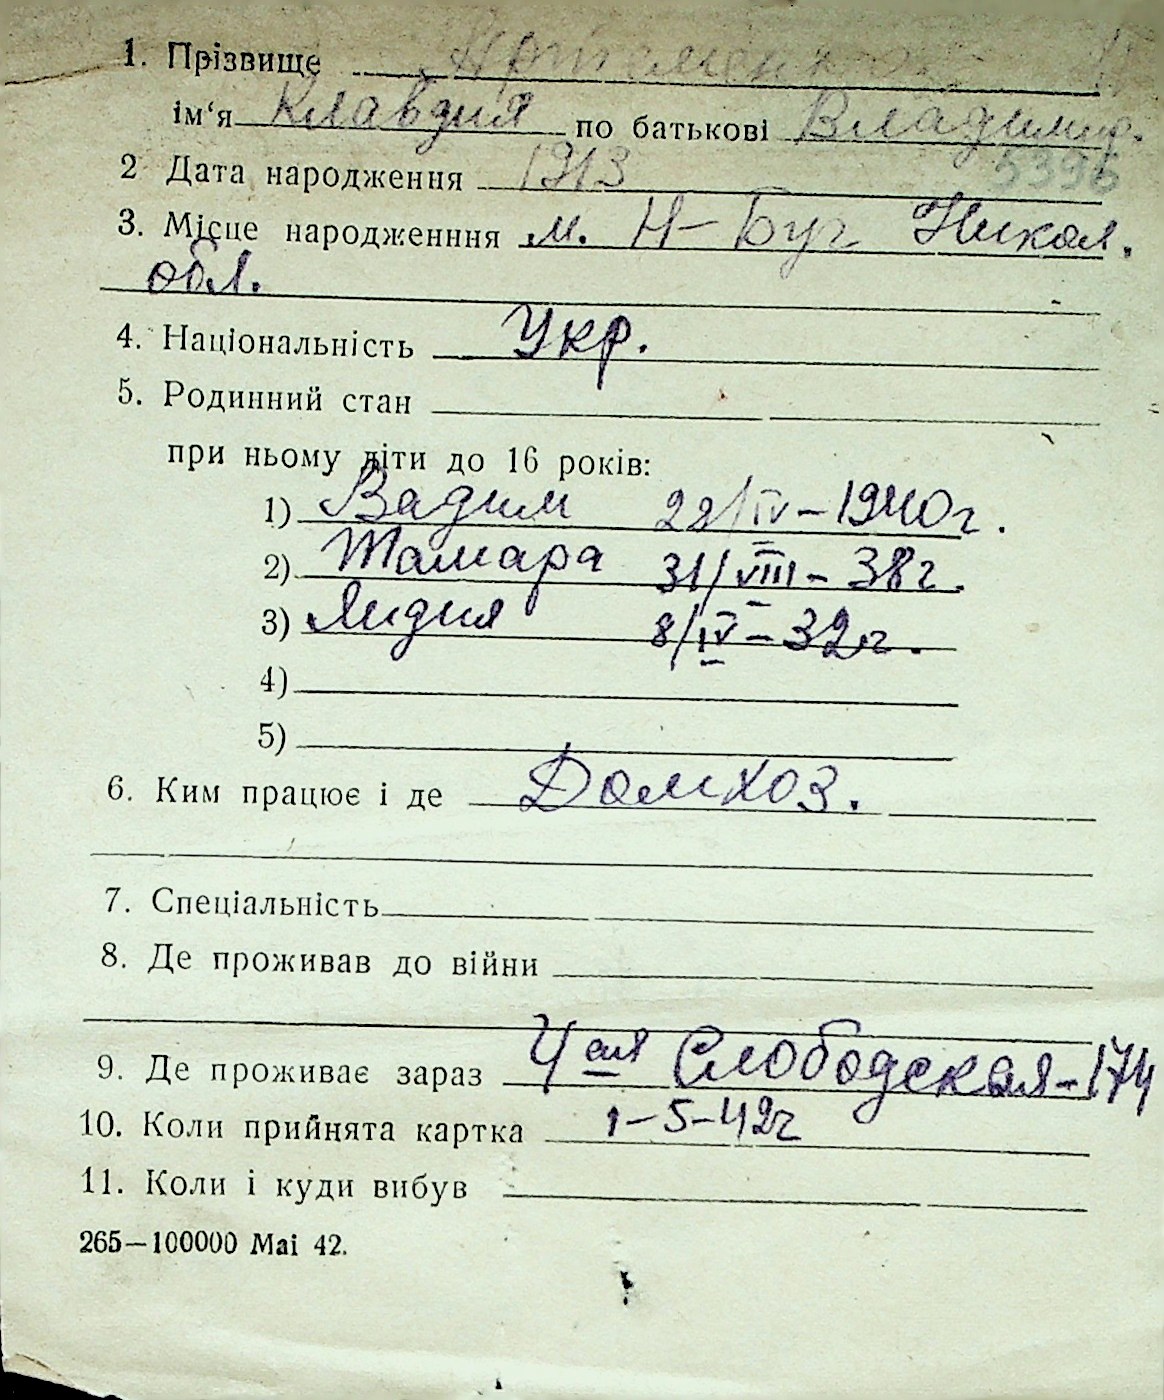 1. Прізвище Артеменко
ім‘я Клавдия по батькові Владимир.
2 Дата народження 1913 5396
3. Місце народженння м. Н-Буг Никол.
обл.
4. Національність Укр.
5. Родинний стан
при ньому діти до 16 років:
1) Вадим 22/IV – 1940г.
2) Тамара 31/VIII – 38г.
3) Лидия 8/IV – 32г.
4)
5)
6. Ким працює і де Домхоз.
7. Спеціальність
8. Де проживав до війни
9. Де проживає зараз 4ая Слободская-174
10. Коли прийнята картка 1-5-42г
11. Коли і куди вибув
265—100000 Mai 42.